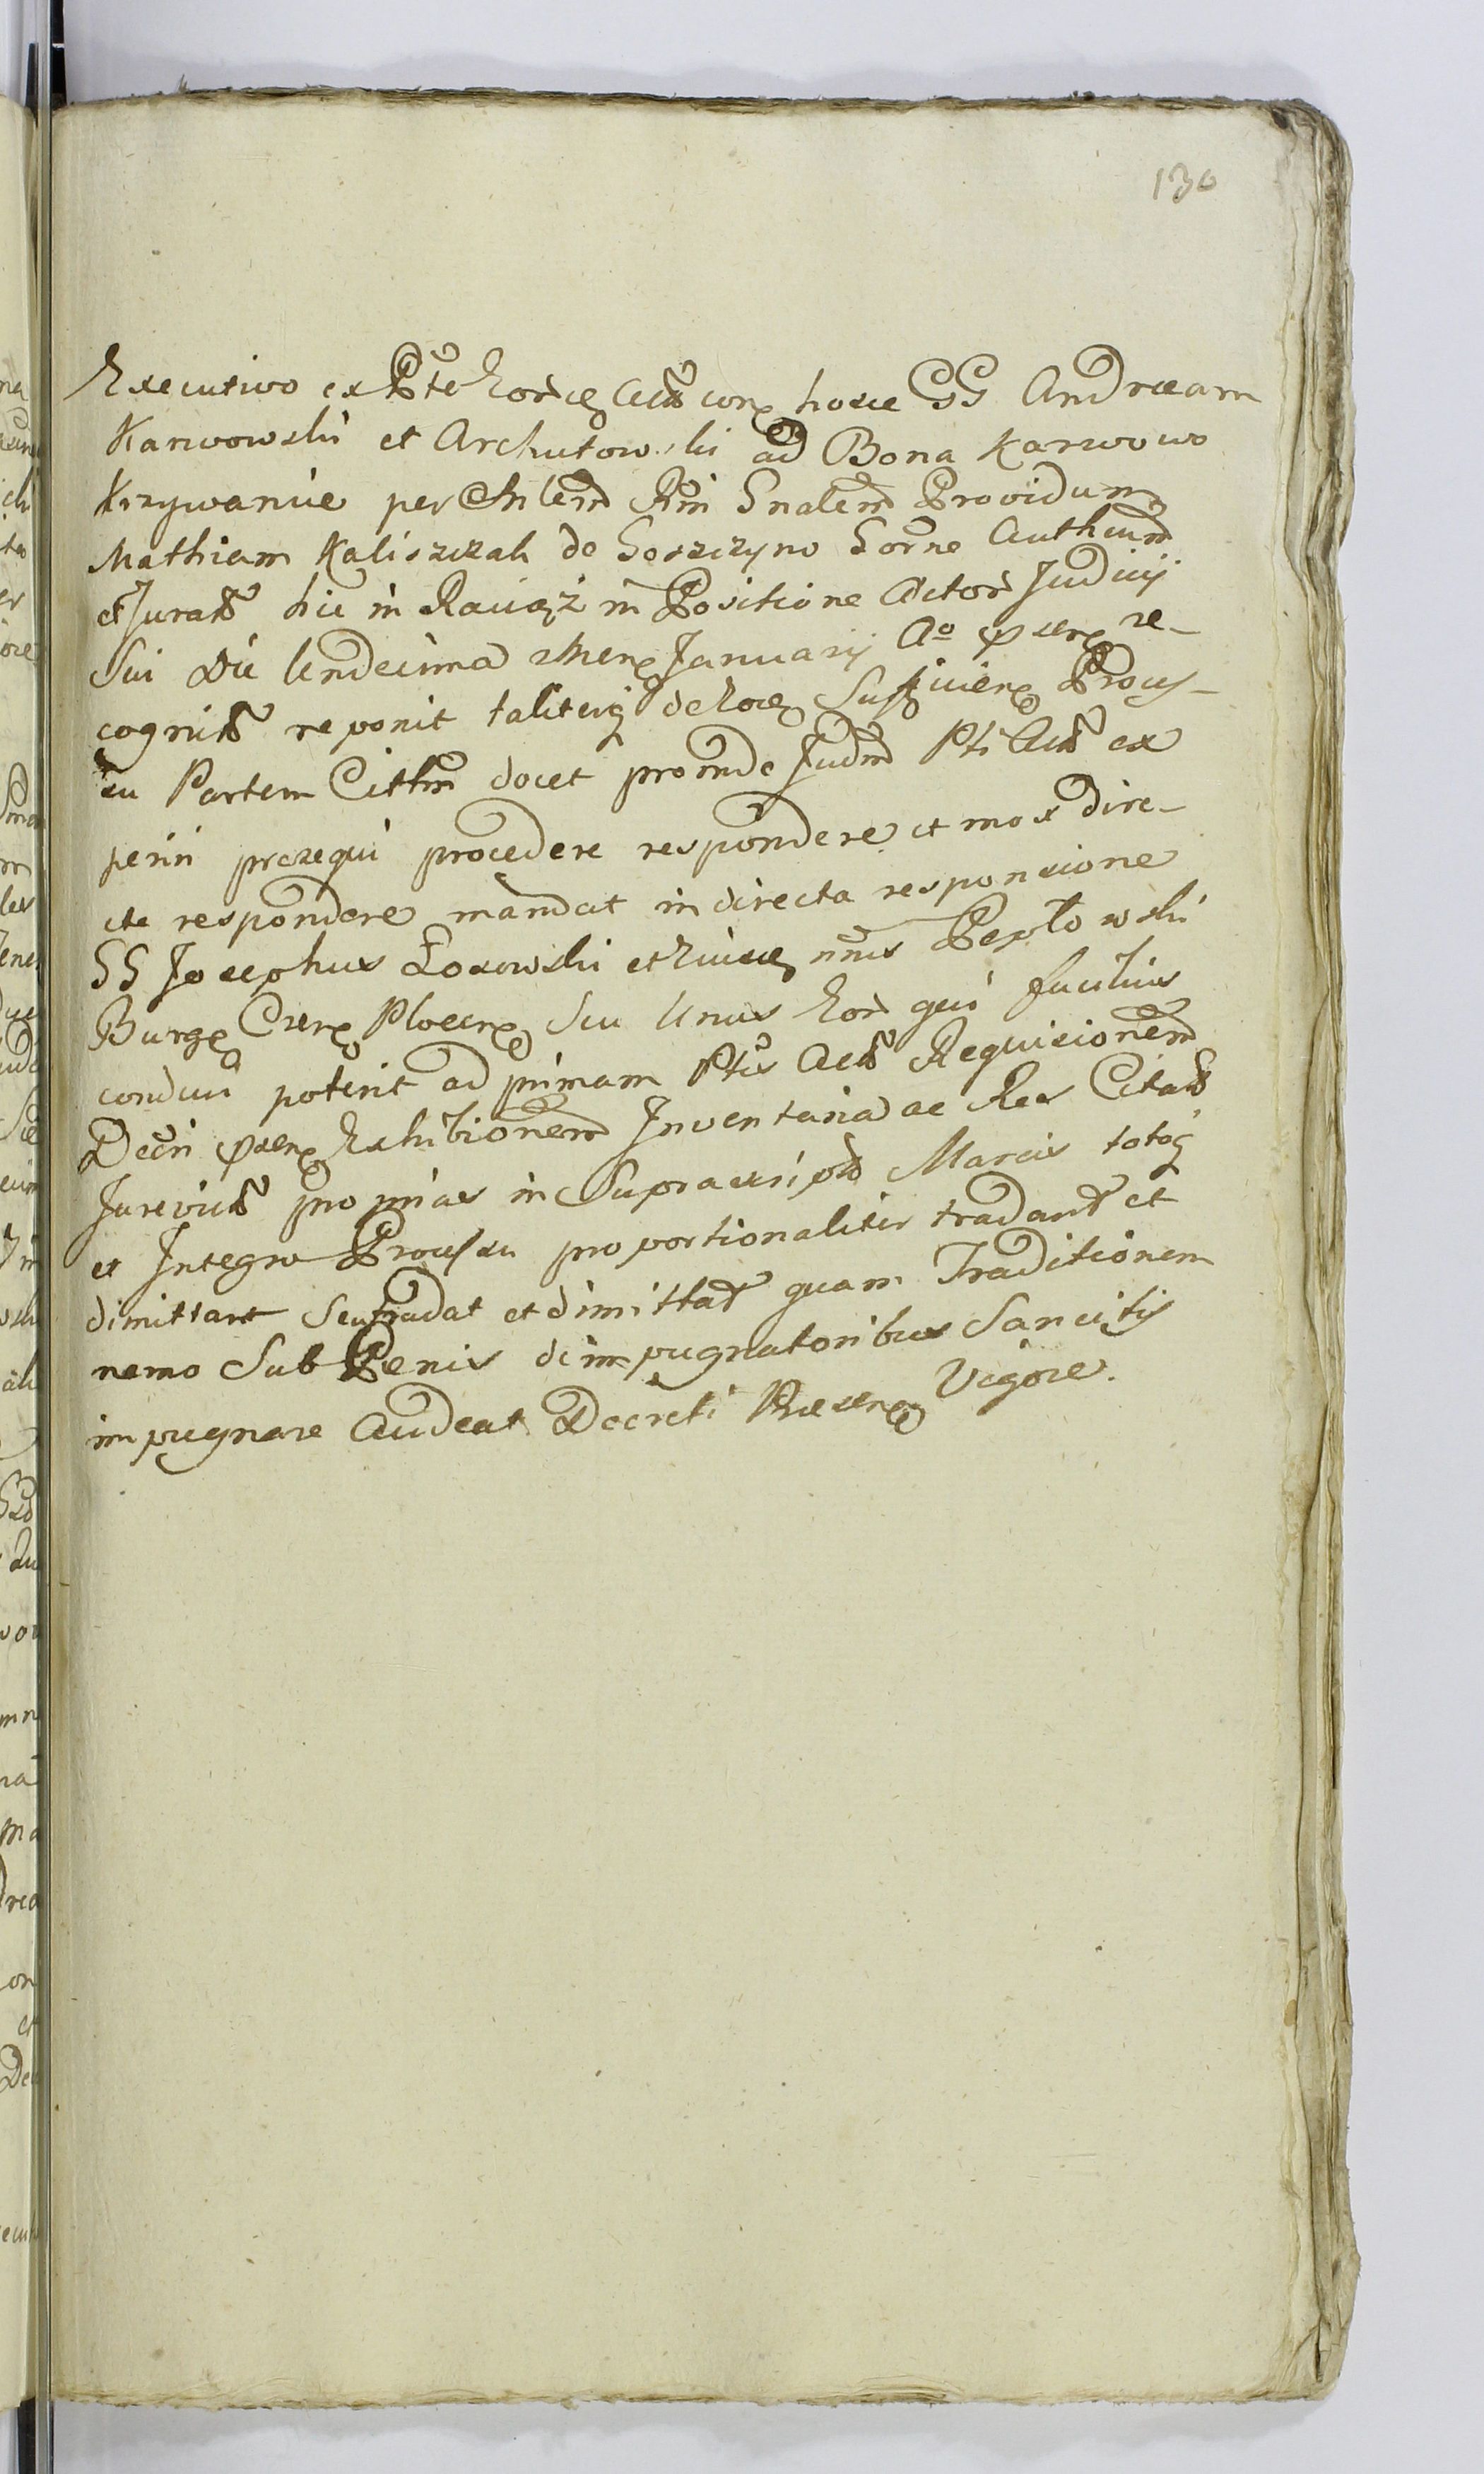 130
Executivo ex Pte Eord Actor con hosce GG Andream
Karwowski et Archutowski ad Bona Karwowo
Krzywanie per Mlem Rni Gnalem Providum
Mathiam Kaliszczak de Goszczyno Gorne Authcum
et Jurat hic in Raciąż in Positione Actor Judicij
Sui Die Undecima Mens January Ao psen re-
cognit reponit taliterq de Suffcien Proces-
su Partem Cittm docet proinde Judm Pti Act ex
periri prosequi procedere respondere et mox dire-
cte respondere mandat in directa responsione
GG Josephus Łosowski et nnus Pepłowski
Burg Cren Plocen seu Unus Eord qui facilius
conduci poterit ad primam Ptis Act Requisionem
Decri psen Exhibionem Inventaria ac Res Citat
Jurevict pro mias in Suprascript Marcis totoq
et Integro Processu proportionaliter tradant et
dimittant Seu tradat et dimittat quam Traditionem
nemo Sub Penis de impugnatoribus Sancitis
impugnare Audeat Decreti Præsen Vigore.